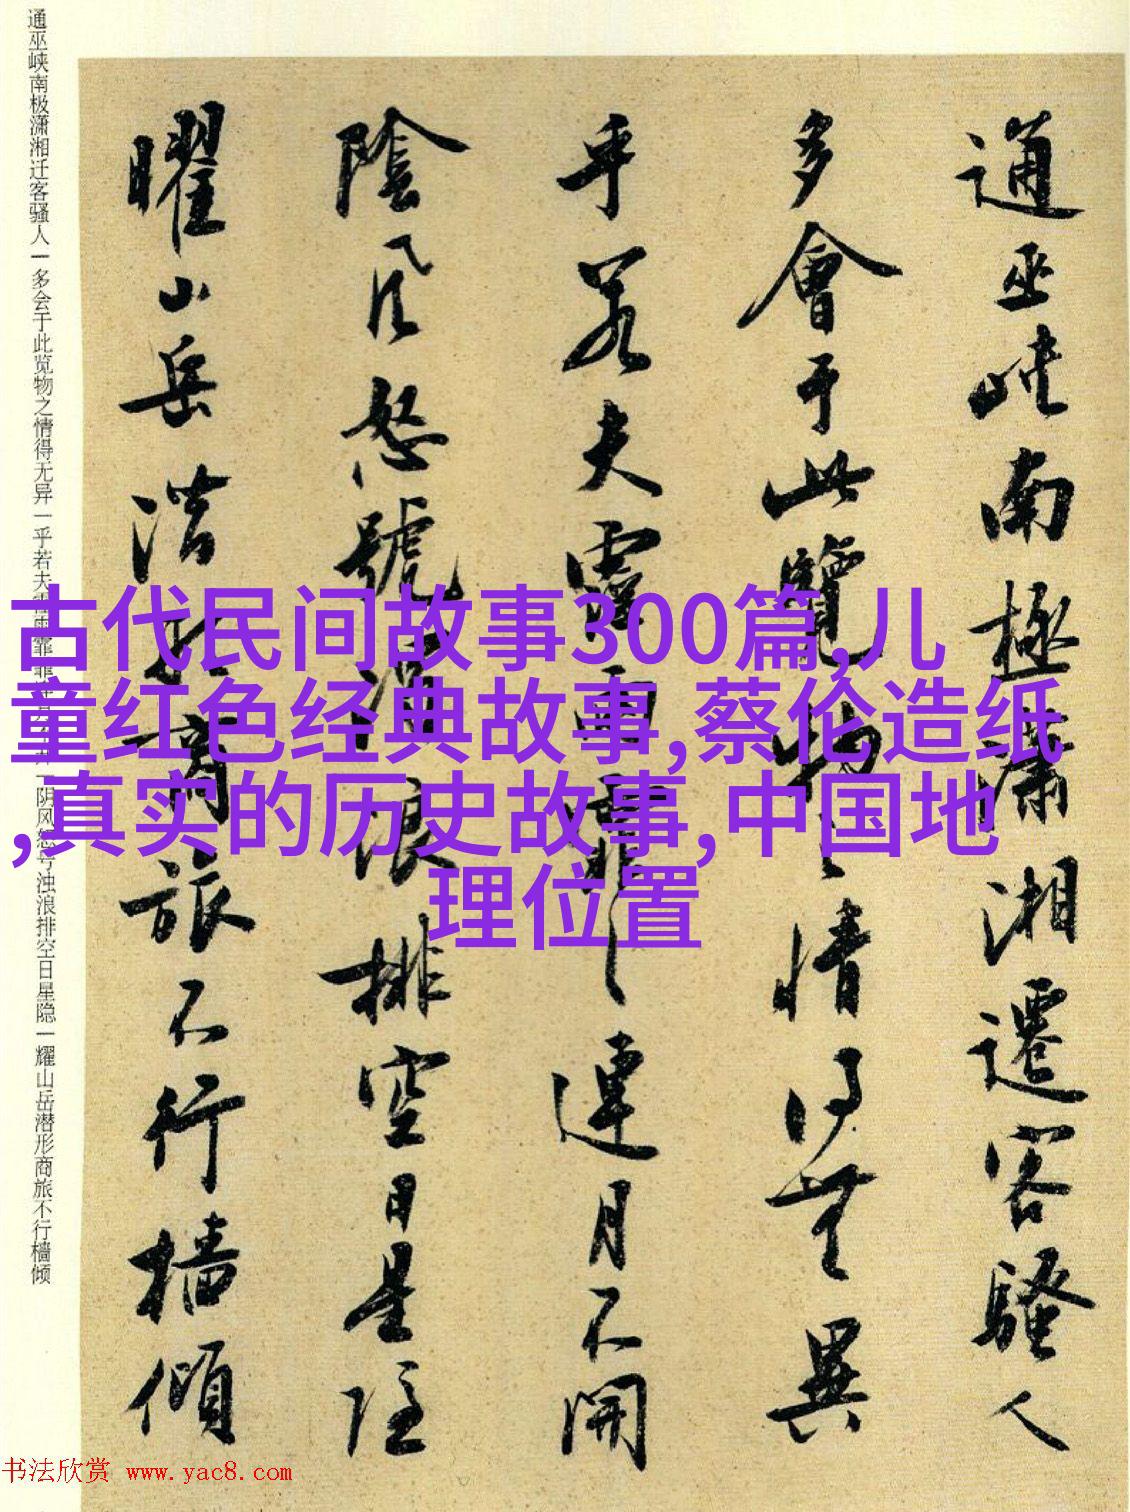 通巫峽南極瀟湘遷客騷人
多會于此覽物之情得無異
乎若夫霪雨霏々連月不開
陰風怒號濁浪排空日星隱
曜山岳潛形商旅不行檣傾
通巫峡南极潇湘迁客骚人一多会于此览物之情得无异一乎若夫霪雨霏霏连月不开一阴风怒号浊浪排空日星隐一耀山岳潜形商旅不行樯倾
古代民间故事300篇,儿
童红色经典故事,蔡伦造纸
,真实的历史故事,中国地
理位置
书法欣赏 www.yac8.com